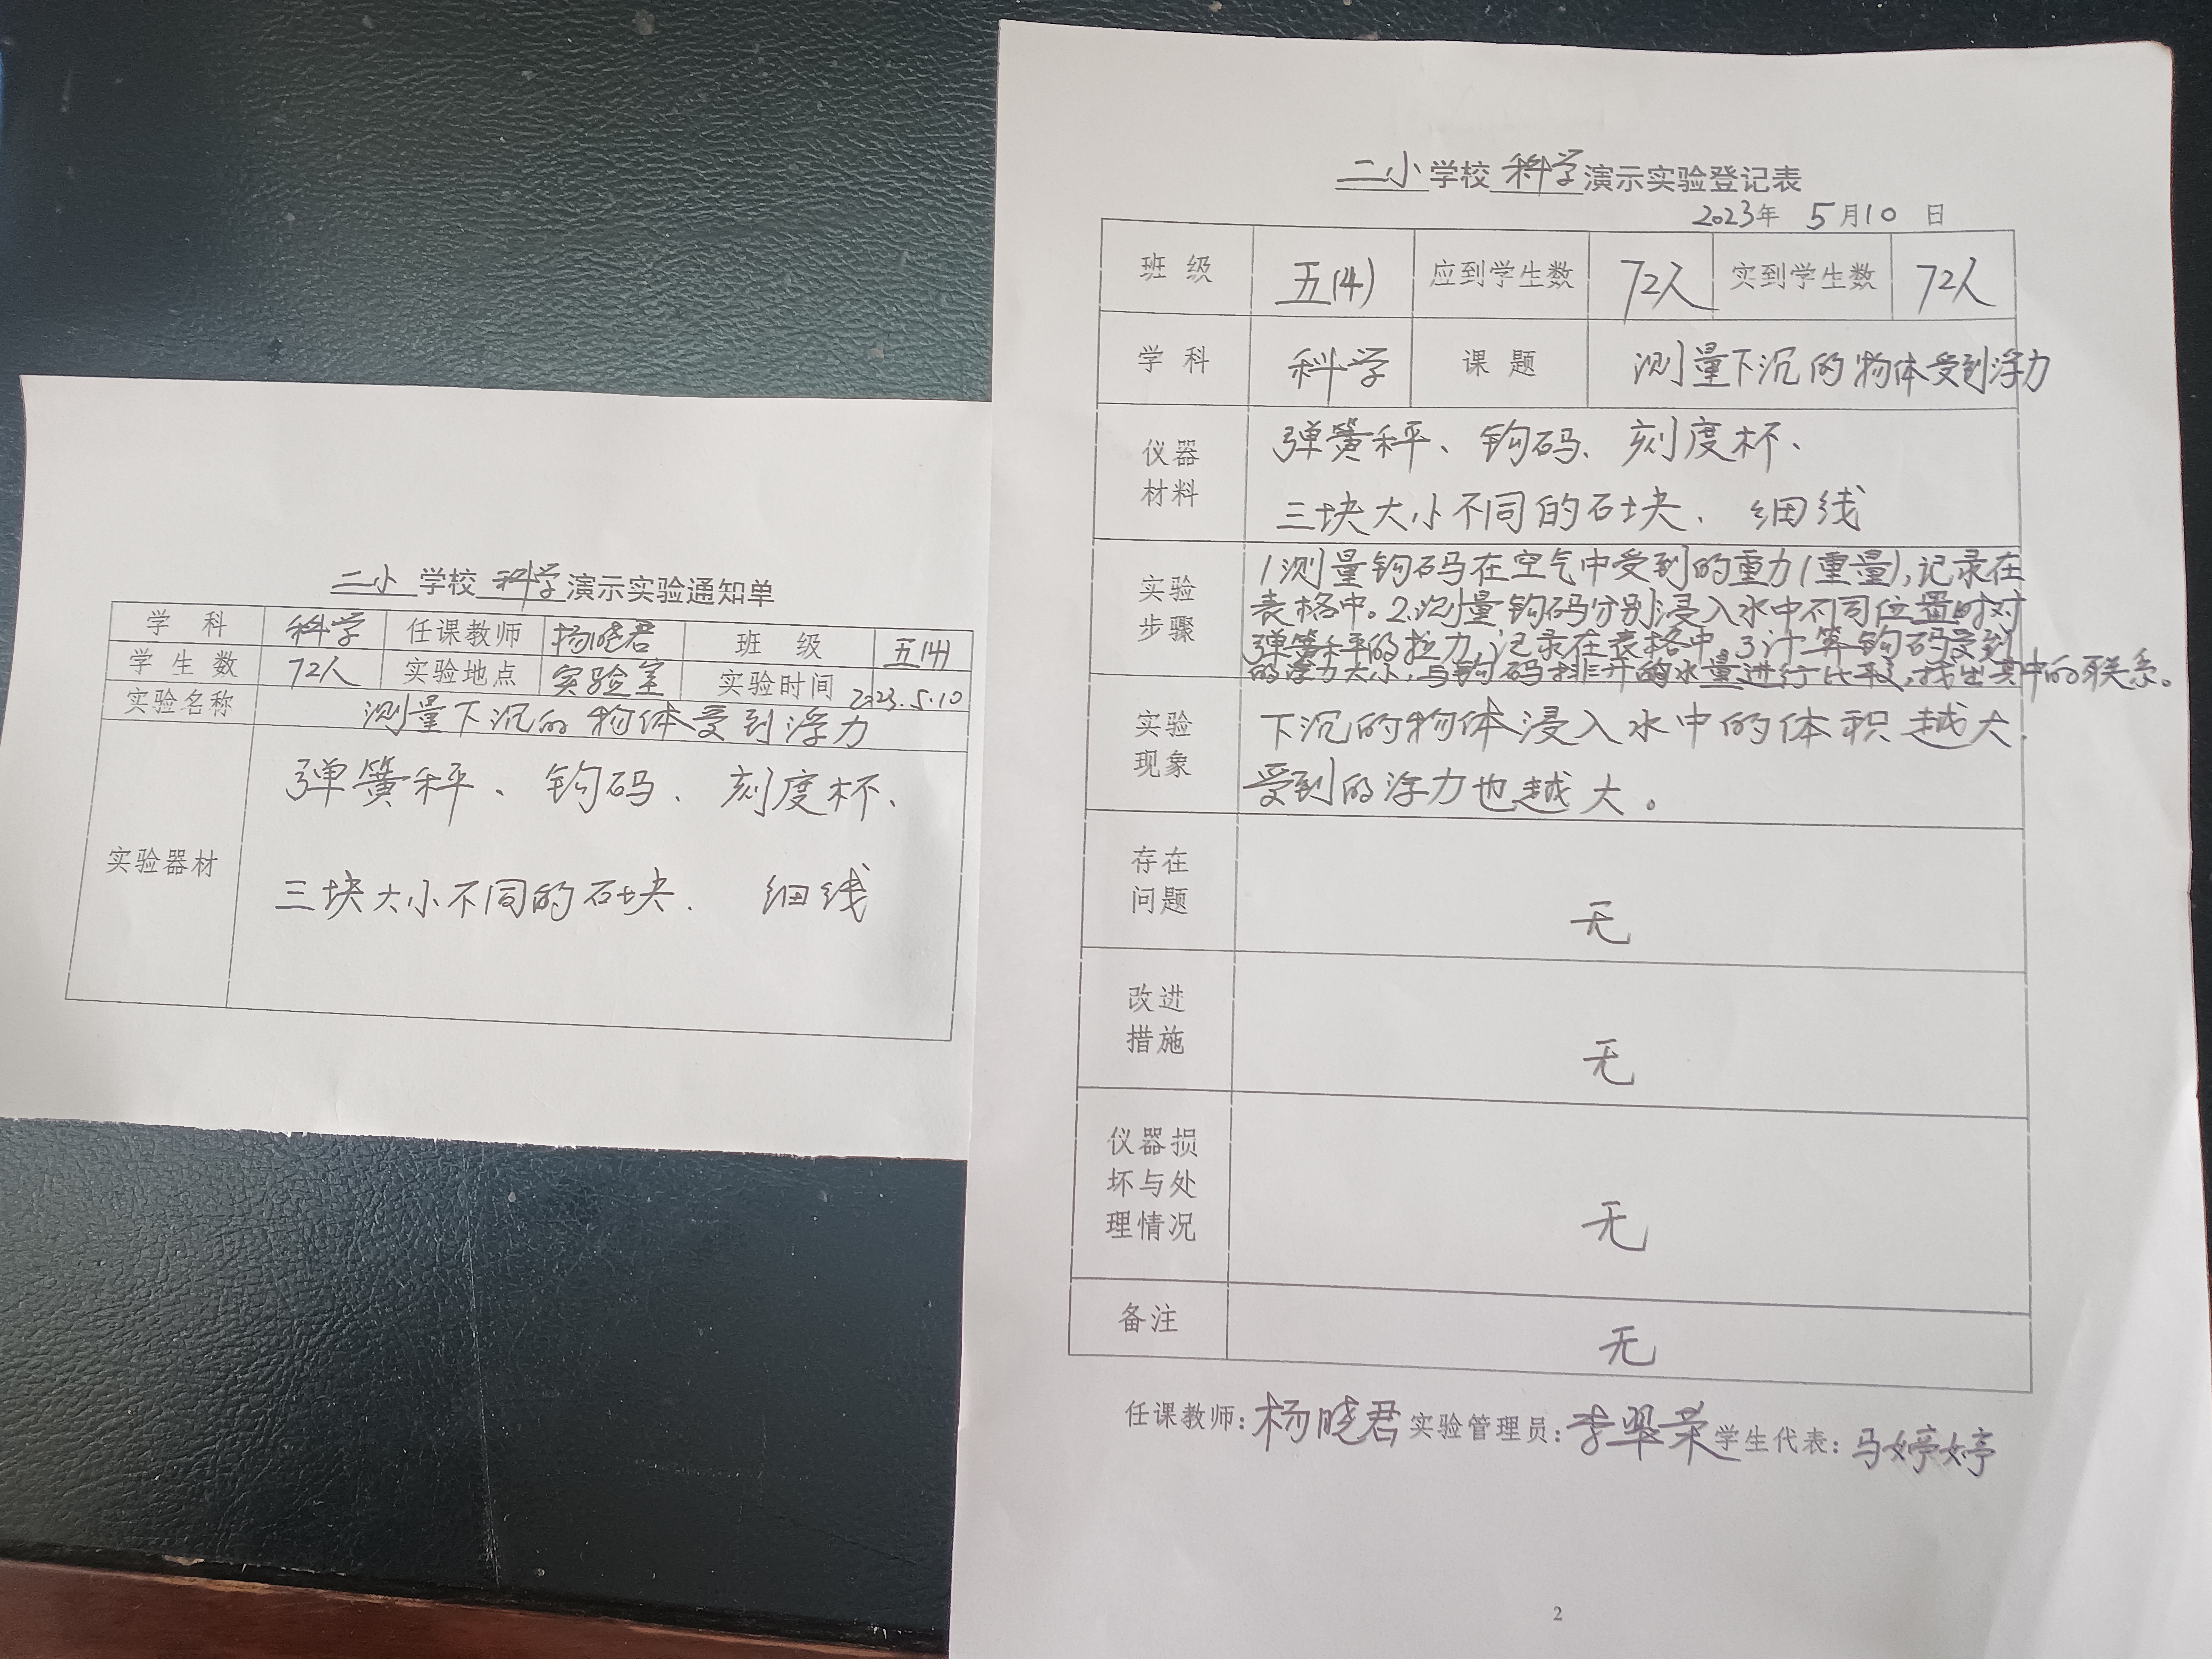 二小学校科学演示实验通知单
学科 科学 任课教师 杨晓君 班级 五(4)
学生数 72人 实验地点 实验室 实验时间 2023.5.10
实验名称 测量下沉的物体受到浮力
实验器材 弹簧秤、钩码、刻度杯、
三块大小不同的石块、细线
二小学校科学演示实验登记表
2023年5月10日
班级 五(4) 应到学生数 72人 实到学生数 72人
学科 科学 课题 测量下沉的物体受到浮力
仪器材料 弹簧秤、钩码、刻度杯、
三块大小不同的石块、细线
实验步骤 1测量钩码在空气中受到的重力(重量),记录在
表格中。2.测量钩码分别浸入水中不同位置时对
弹簧秤的拉力,记录在表格中。3计算钩码受到
的浮力大小,与钩码排开的水量进行比较,找出其中的联系。
实验现象 下沉的物体浸入水中的体积越大,
受到的浮力也越大。
存在问题 无
改进措施 无
仪器损坏与处理情况 无
备注 无
任课教师:杨晓君 实验管理员:李翠荣 学生代表:马婷婷
2